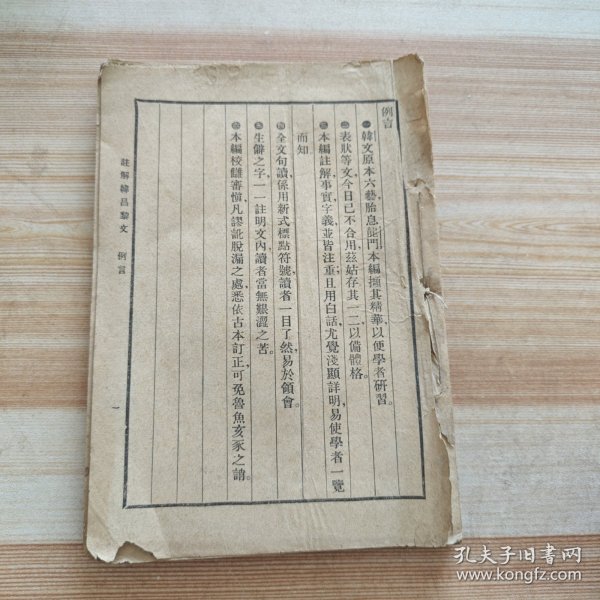 例言
㊀韓文原本六藝,胎息龍門,本編擷其精華,以便學者研習。
㊁表狀等文,今日已不合用,茲姑存其一二以備體格。
㊂本編註解,事實字義,並皆注重,且用白話,尤覺淺顯詳明,易使學者一覽
而知
㊃全文句讀,係用新式標點符號,讀者一目了然,易於領會。
㊄生僻之字,一一註明文內,讀者當無艱澀之苦。
㊅本編校讎審愼,凡謬訛脫漏之處,悉依古本訂正,可免魯魚亥豕之誚。
註解韓昌黎文 例言
一
孔夫子旧书网
www.kongfz.com